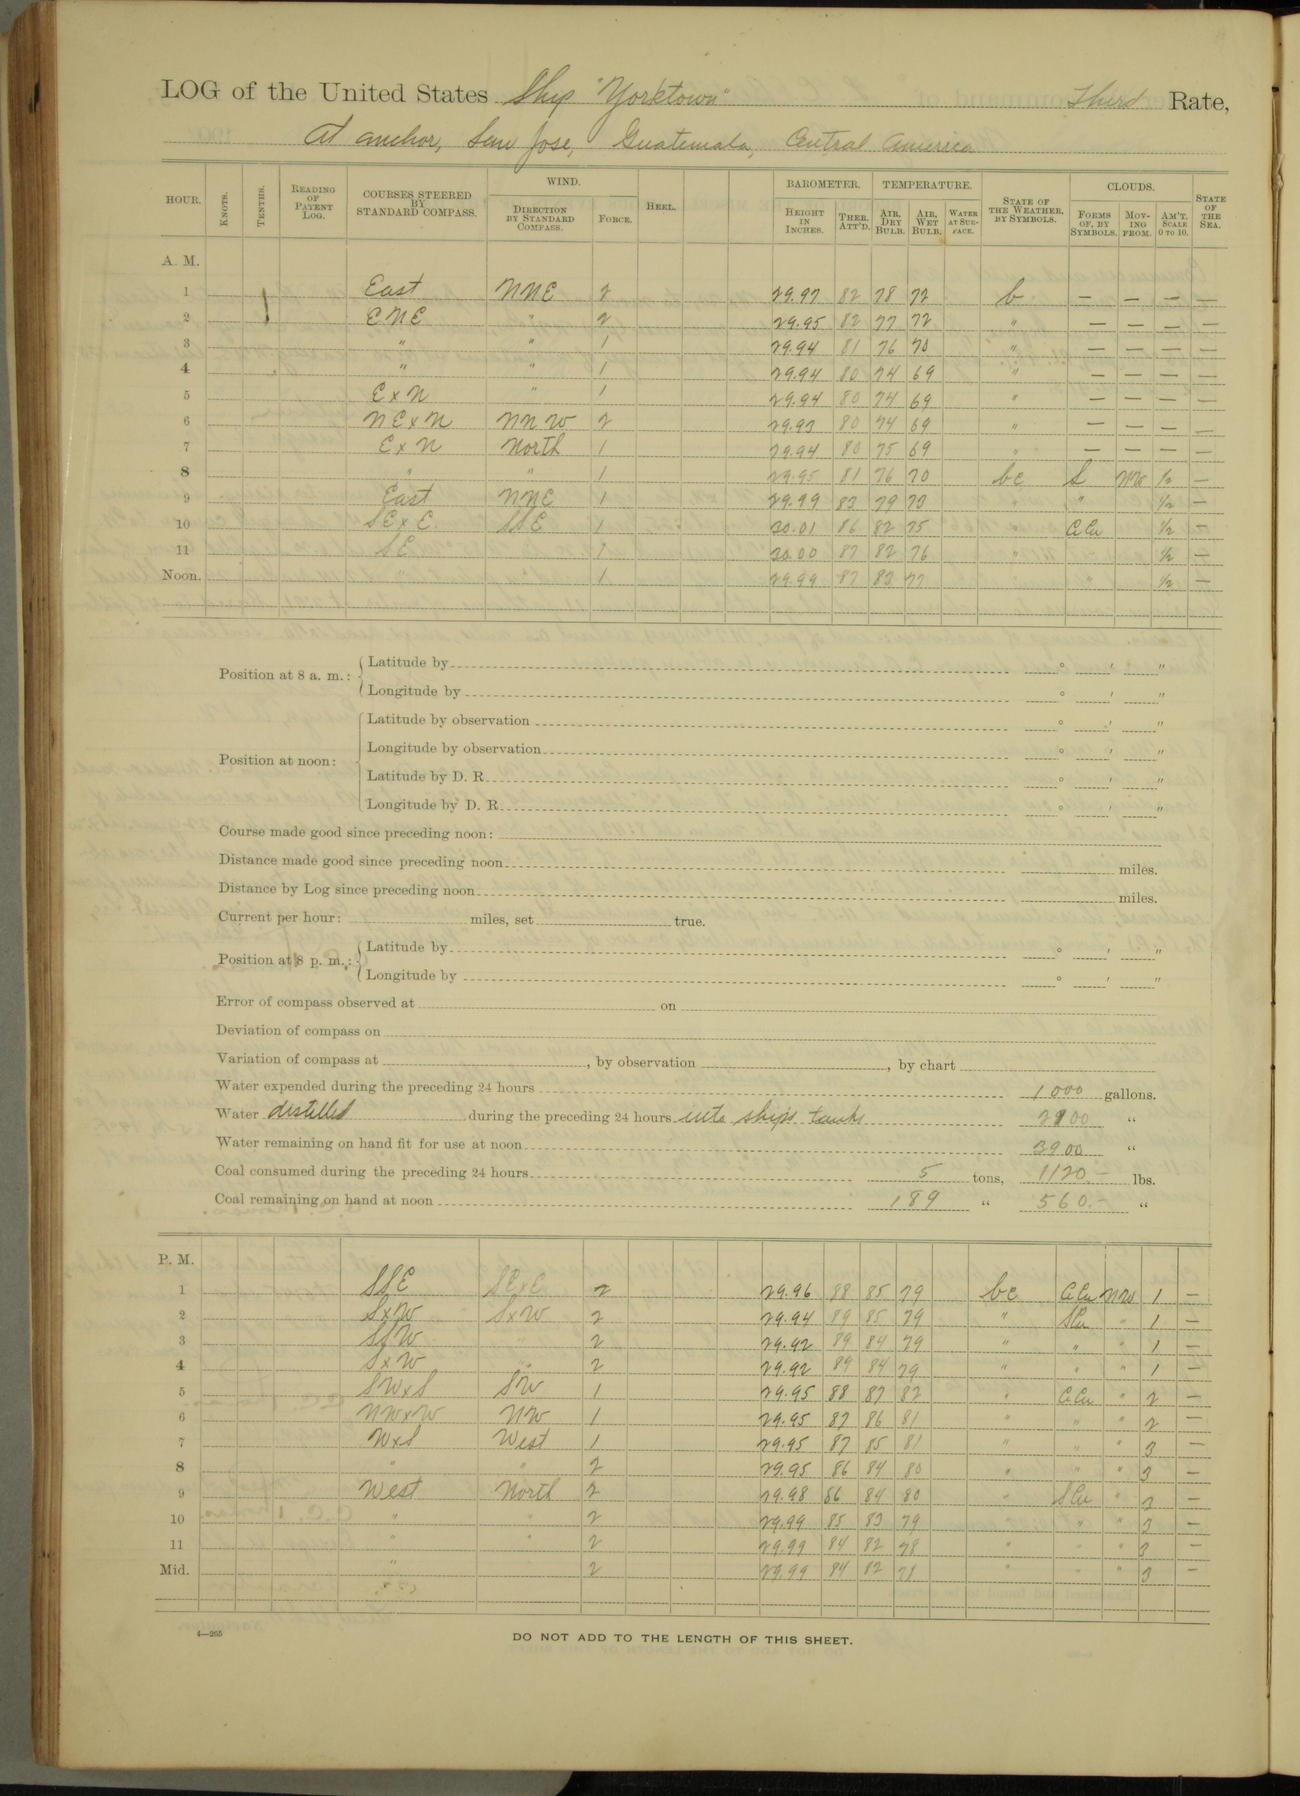 LOG of the United States Ship "Yorktown" Third Rate,
At anchor, San Jose, Guatemala, Central America
HOUR. KNOTS. TENTHS. READING OF PATENT LOG. COURSES STEERED BY STANDARD COMPASS. WIND. DIRECTION BY STANDARD COMPASS. FORCE. HEEL. BAROMETER. HEIGHT IN INCHES. THER. ATT'D. TEMPERATURE. AIR, DRY BULB. AIR, WET BULB. WATER AT SURFACE. STATE OF THE WEATHER, BY SYMBOLS. CLOUDS. FORMS OF, BY SYMBOLS. MOVING FROM. AM'T, SCALE 0 TO 10. STATE OF THE SEA.
A. M.
1 East NNE 2 29.97 82 78 72 b — — — —
2 ENE " 2 29.95 82 77 72 " — — — —
3 " " 1 29.94 81 76 70 " — — — —
4 " " 1 29.94 80 74 69 " — — — —
5 ExN " 1 29.94 80 74 69 " — — — —
6 NExN NNW 2 29.93 80 74 69 " — — — —
7 ExN North 1 29.94 80 75 69 " — — — —
8 " " 1 29.95 81 76 70 bc S NW ½ —
9 East NNE 1 29.99 83 79 73 " " ½ —
10 SExE SSE 1 30.01 86 82 75 " CiCu ½ —
11 SE " 1 30.00 87 82 76 " " ½ —
Noon. " " 1 29.99 87 83 77 " " ½ —
Position at 8 a. m.: Latitude by ° ′ ″
Longitude by ° ′ ″
Position at noon: Latitude by observation ° ′ ″
Longitude by observation ° ′ ″
Latitude by D. R. ° ′ ″
Longitude by D. R. ° ′ ″
Course made good since preceding noon:
Distance made good since preceding noon miles.
Distance by Log since preceding noon miles.
Current per hour: miles, set true.
Position at 8 p. m.: Latitude by ° ′ ″
Longitude by ° ′ ″
Error of compass observed at on
Deviation of compass on
Variation of compass at , by observation , by chart
Water expended during the preceding 24 hours 1000 gallons.
Water distilled during the preceding 24 hours into ships tanks 2100 "
Water remaining on hand fit for use at noon 3900 "
Coal consumed during the preceding 24 hours 5 tons, 1120.— lbs.
Coal remaining on hand at noon 189 " 560.— "
P. M.
1 SSE SExE 2 29.96 88 85 79 bc CiCu NW 1 —
2 SxW SxW 2 29.94 89 85 79 " SCu " 1 —
3 SSW " 2 29.92 89 84 79 " " " 1 —
4 SxW " 2 29.92 89 84 79 " " " 1 —
5 SWxS SW 1 29.95 88 87 82 " CiCu " 2 —
6 NWxW NW 1 29.95 87 86 81 " " " 2 —
7 WxS West 1 29.95 87 85 81 " " " 3 —
8 " " 2 29.95 86 84 80 " " " 3 —
9 West North 2 29.98 86 84 80 " SCu " 3 —
10 " " 2 29.99 85 83 79 " " " 3 —
11 " " 2 29.99 84 82 78 " " " 3 —
Mid. " 2 29.99 84 82 78 " " " 3 —
4—265
DO NOT ADD TO THE LENGTH OF THIS SHEET.